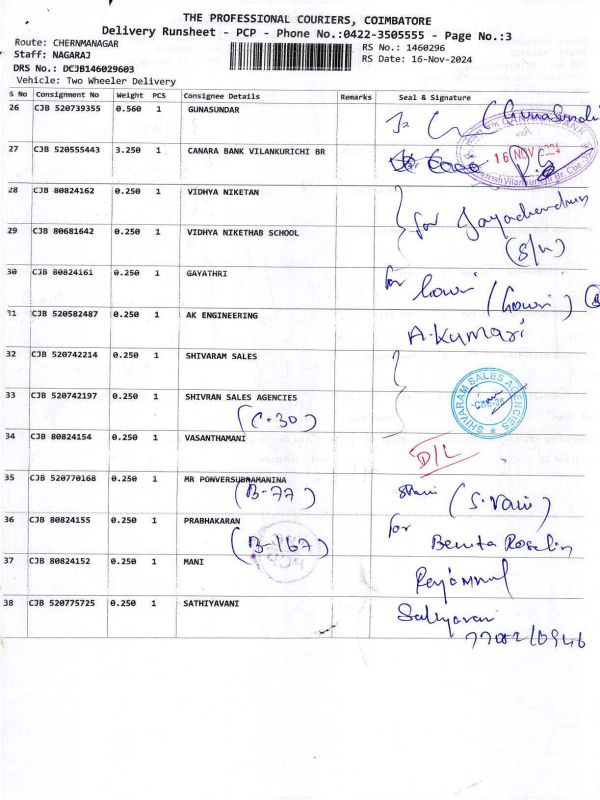 THE PROFESSIONAL COURIERS, COIMBATORE
Delivery Runsheet - PCP - Phone No.:0422-3505555 - Page No.:3
Route: CHERNMANAGAR RS No.: 1460296
Staff: NAGARAJ RS Date: 16-Nov-2024
DRS No.: DCJB146029603
Vehicle: Two Wheeler Delivery
S No Consignment No Weight PCS Consignee Details Remarks Seal & Signature
26 CJB 520739355 0.560 1 GUNASUNDAR
27 CJB 520555443 3.250 1 CANARA BANK VILANKURICHI BR 16 NOV
28 CJB 80824162 0.250 1 VIDHYA NIKETAN
for Jayachandran
29 CJB 80681642 0.250 1 VIDHYA NIKETHAB SCHOOL
(S/n)
30 CJB 80824161 0.250 1 GAYATHRI for Gowri (Gowri)
31 CJB 520582487 0.250 1 AK ENGINEERING
A.Kumari
32 CJB 520742214 0.250 1 SHIVARAM SALES
33 CJB 520742197 0.250 1 SHIVRAN SALES AGENCIES SHIVARAM SALES AGENCIES
(C.30) CBE-35
34 CJB 80824154 0.250 1 VASANTHAMANI
D/L
35 CJB 520770168 0.250 1 MR PONVERSUBNAMANINA
(B-77) (S.Vani)
36 CJB 80824155 0.250 1 PRABHAKARAN for
(B-167) Benita Roselin
37 CJB 80824152 0.250 1 MANI
38 CJB 520775725 0.250 1 SATHIYAVANI